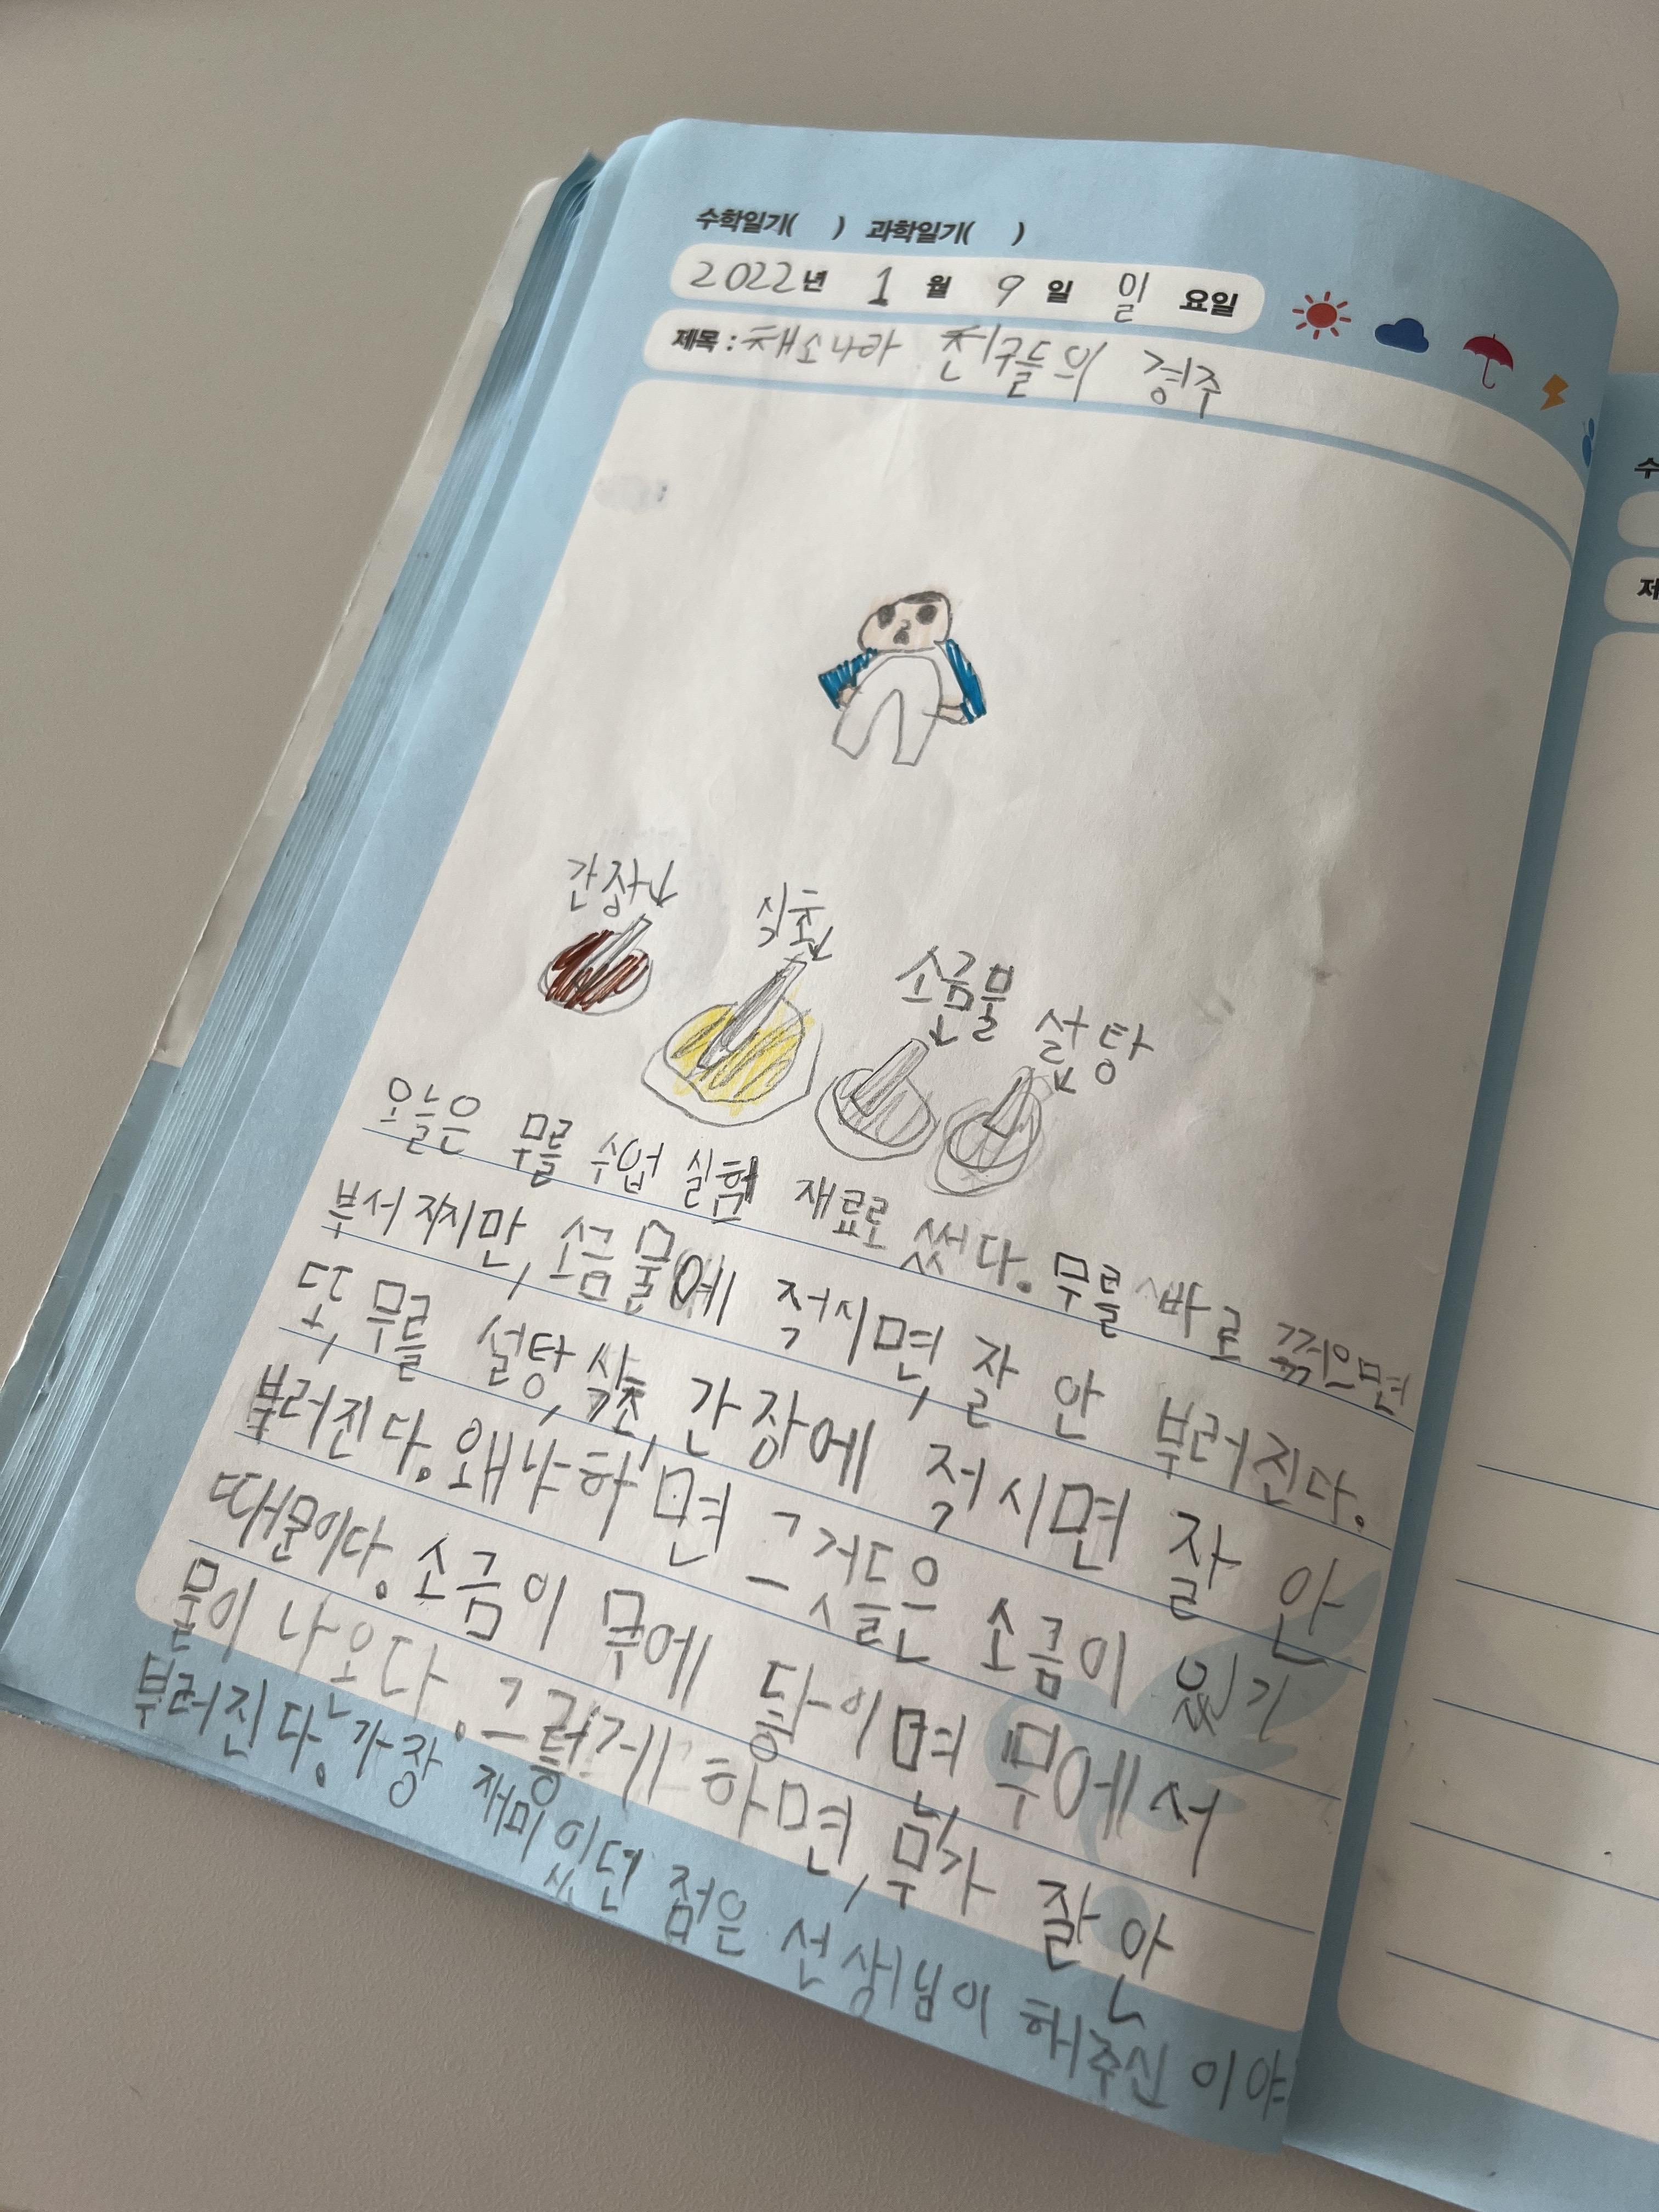 수학일기( ) 과학일기( )
2022년 1월 9일 일요일
제목 : 채소나라 친구들의 경주
간장↓
식초↓
소금물↓
설탕↓
오늘은 무를 수업 실험 재료로 썼다. 무를 바로 꺾으면
부서지지만, 소금물에 적시면, 잘 안 부러진다.
또, 무를 설탕, 식초, 간장에 적시면 잘 안
부러진다. 왜냐하면 그것들은 소금이 있기
때문이다. 소금이 무에 닿이면 무에서
물이 나온다. 그렇게 하면, 무가 잘 안
부러진다. 가장 재미있던 점은 선생님이 해주신 이야
수
제